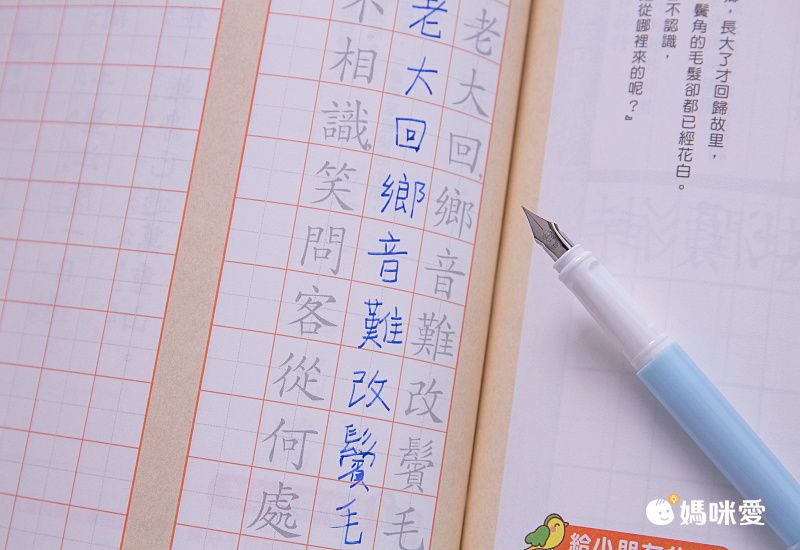 ，長大了才回歸故里，
鬢角的毛髮卻都已經花白。
不認識，
從哪裡來的呢？』
老大回，鄉音難改鬢毛
老大回鄉音難改鬢毛
不相識，笑問客從何處
給小朋友
媽咪愛